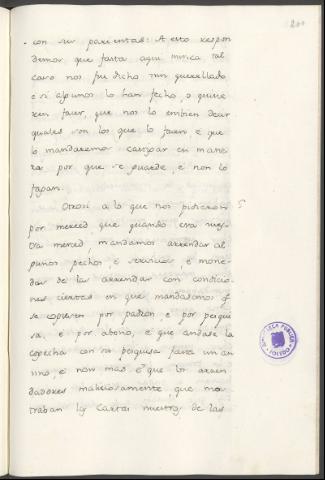 200
con sus parientas: A esto respon
demos que fasta aqui nunca tal
caso nos fue dicho nin querellado
e si algunos lo han fecho, o quisie
ren facer, que nos lo embien decir
quales son los que lo facen e que
lo mandaremos castigar en mane
ra por que se guarde, e non lo
fagan.
Otrosi a lo que nos pidieron
por merced, que quando era nues
tra merced, mandamos arrendar al
gunos pechos, e servicios, e mone
das de las arrendar con condicio
nes ciertas en que mandasemos q
se cogiesen por padron e por pesqui
sa, e por abono, e que andase la
cogecha con la pesquisa fasta un
nno, e non mas e que los arren
dadores maliciosamente que mos
traban las Cartas nuestras de las
5
BIBLIOTECA PUBLICA
TOLEDO